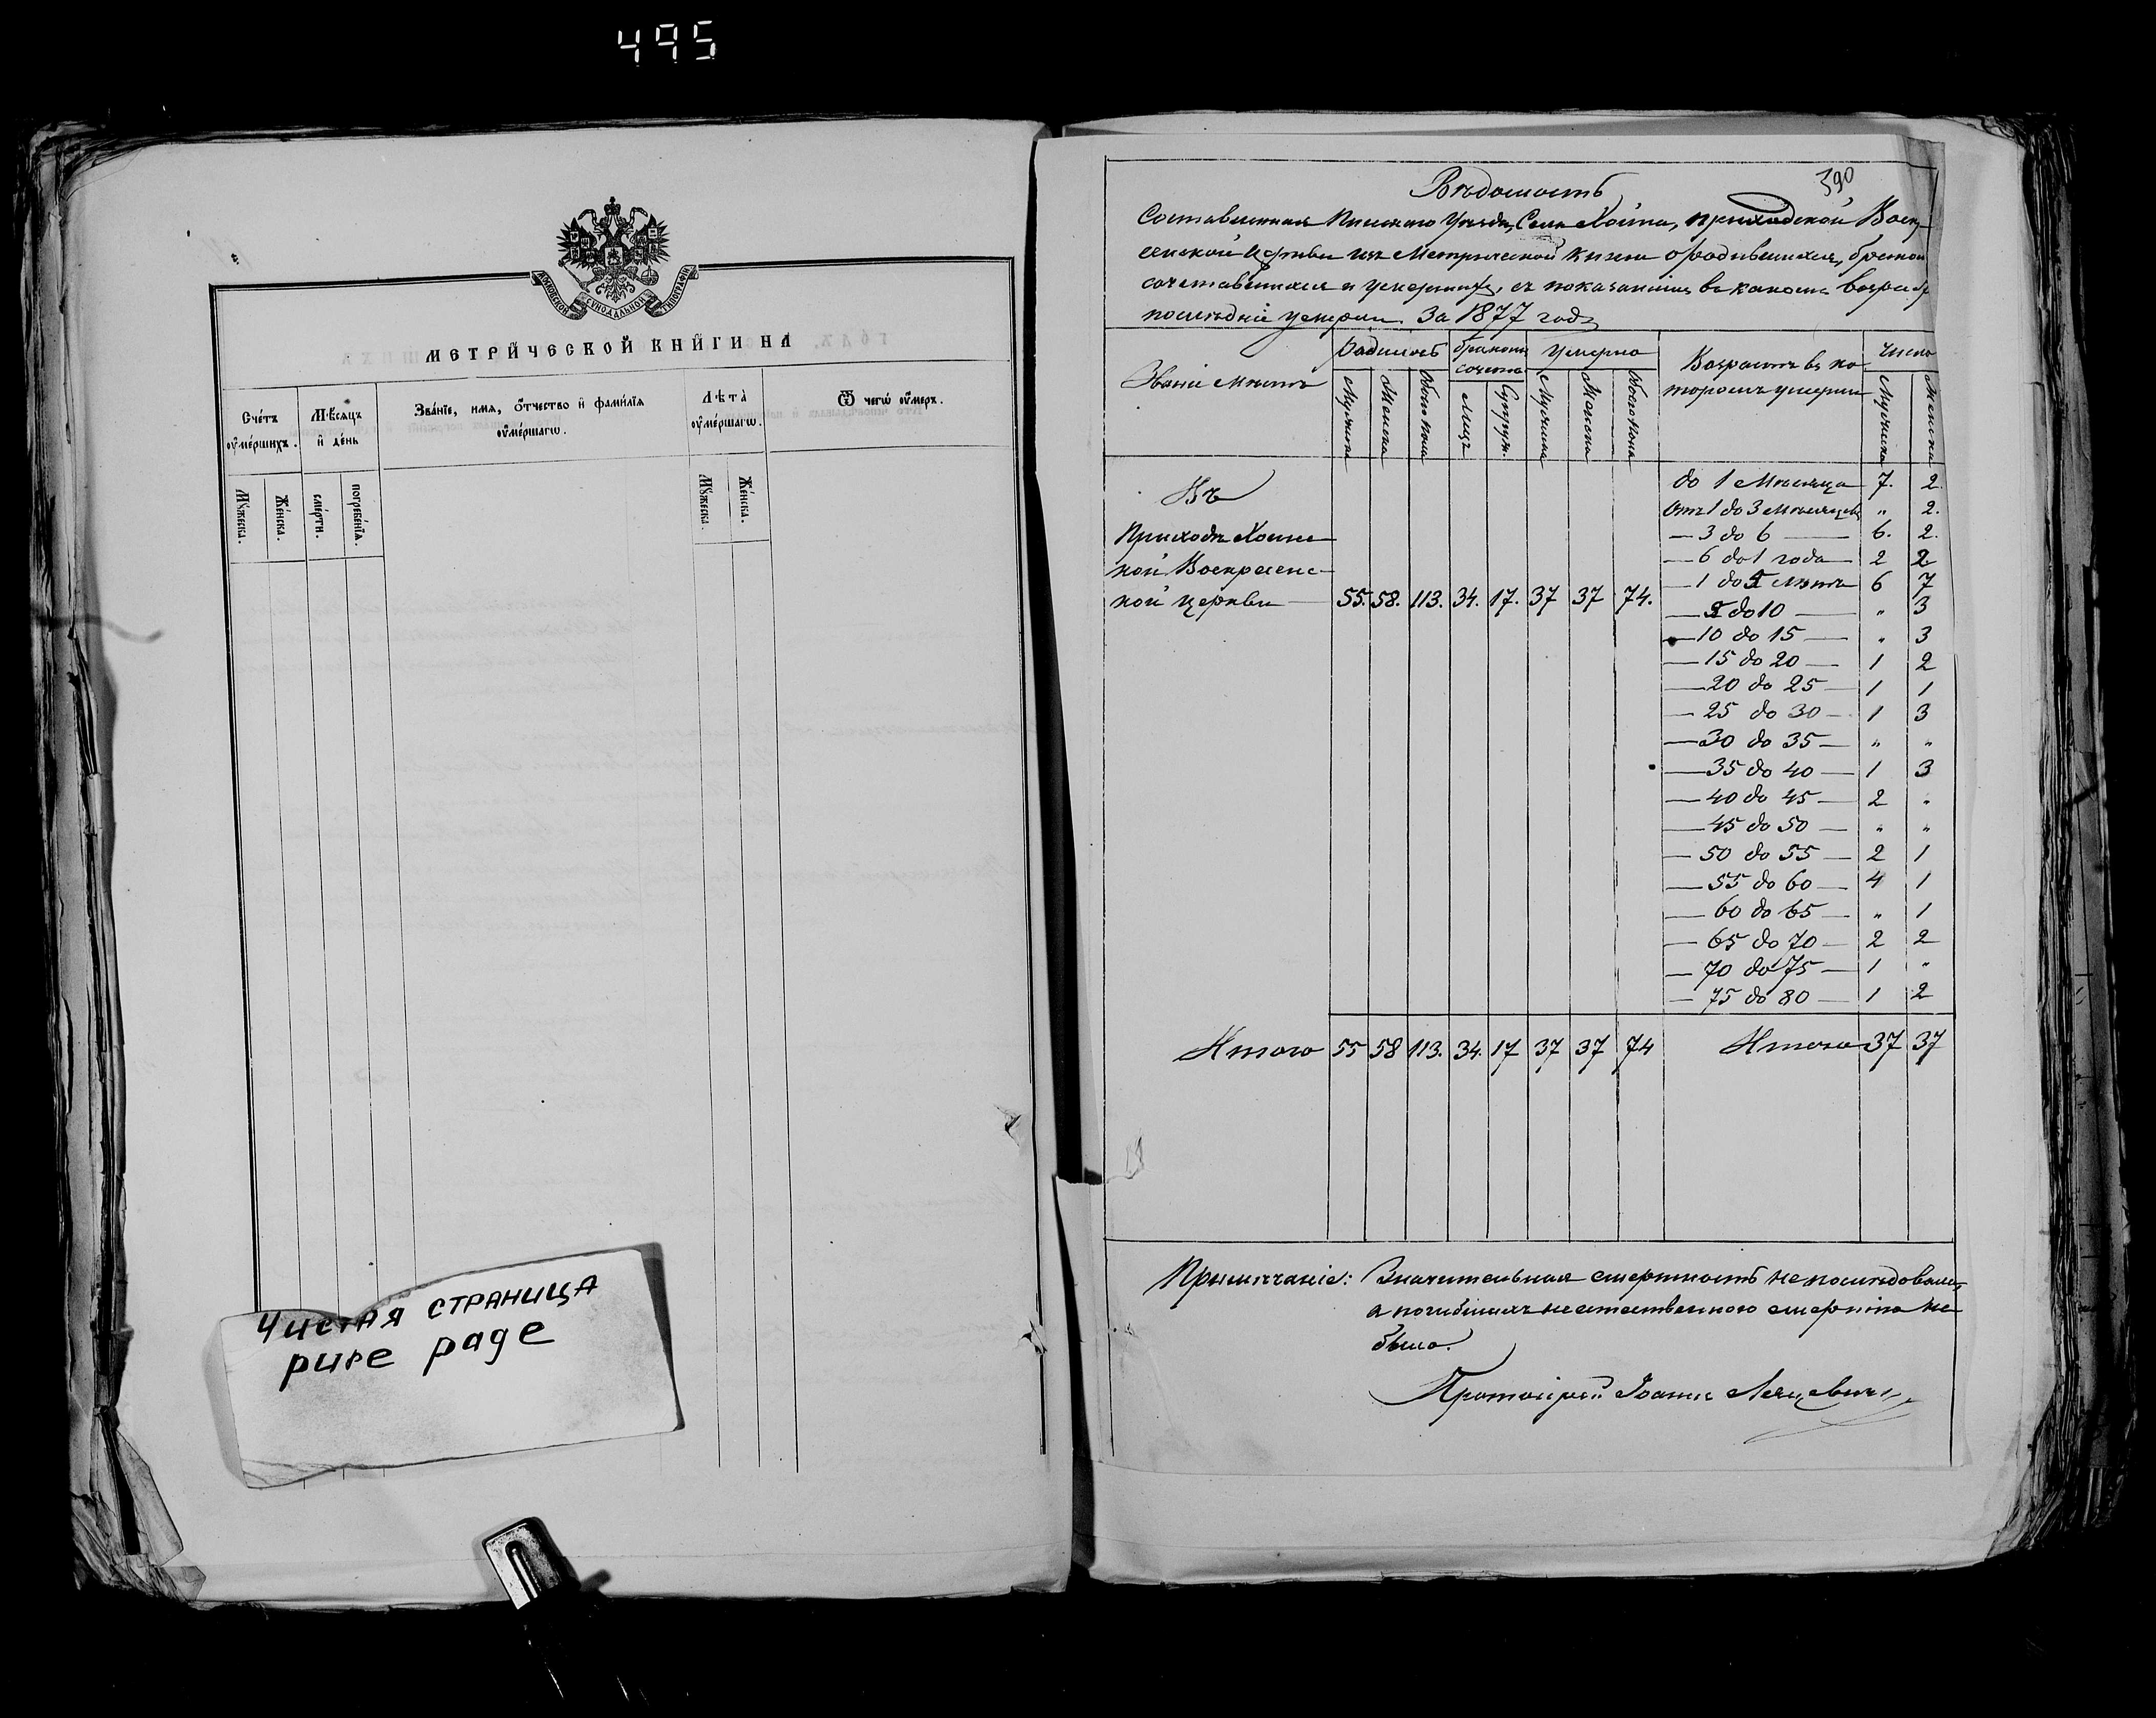 495
МОСКОВСКОЙ СИНОДАЛЬНОЙ ТИПОГРАФІИ
МЕТРИЧЕСКОЙ КНИГИ НА
Счетъ оумершихъ.
Мѣсяцъ и день
Званіе, имя, отчество и фамилія оумершагѡ.
Лѣта оумершагѡ.
Ѿ чегѡ оумеръ.
Мужеска.
Женска.
смерти.
погребенія.
Мужеска.
Женска.
Чистая страница
pure page
390
Вѣдомость
Составленная Пинскаго Уѣзда, Села Хойна, приходской Воскре-
сенской Церкви изъ Метрической книги о родившихся, бракомъ
сочетавшихся и умершихъ, съ показаніемъ въ какомъ возрастѣ
послѣдніе умерли. За 1877 годъ
Званіе мѣстъ
Родилось
бракомъ сочет.
Умерло
Возрастъ въ ко-
торомъ умерли
Число
Мужска
Женска
Обоего пола
Лицъ
Супруж.
Мужска
Женска
Обоего пола
Мужска
Женска
Въ
Приходѣ Хоинс-
кой Воскресенс-
кой церкви 55. 58. 113. 34. 17. 37 37 74.
до 1 Мѣсяца 7. 2.
Отъ 1 до 3 Мѣсяцевъ „ 2.
— 3 до 6 — 6. 2.
— 6 до 1 года — 2 2
— 1 до 5 лѣтъ 6 7
— 5 до 10 — „ 3
— 10 до 15 — „ 3
— 15 до 20 — 1 2
— 20 до 25 — 1 1
— 25 до 30 — 1 3
— 30 до 35 — „ „
— 35 до 40 — 1 3
— 40 до 45 — 2 „
— 45 до 50 — „ „
— 50 до 55 — 2 1
— 55 до 60 — 4 1
— 60 до 65 — „ 1
— 65 до 70 — 2 2
— 70 до 75 — 1 „
— 75 до 80 — 1 2
Итого 55 58 113. 34. 17 37 37 74 Итого 37 37
Примѣчаніе: Значительная смертность не послѣдовала,
а погибшихъ неестественною смертію не
было.
Протоіерей Іоаннъ